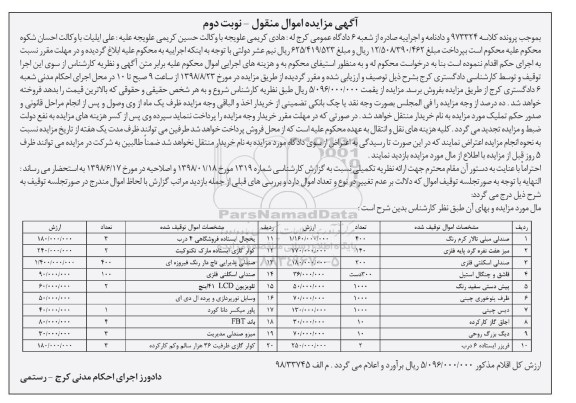 آگهی مزایده اموال منقول - نوبت دوم
بموجب پرونده کلاسه ۹۷۳۳۲۴ و دادنامه و اجراییه صادره از شعبه ۶ دادگاه عمومی کرج له : هادی کریمی علویجه با وکالت حسین کریمی علویجه علیه : علی ایلیات با وکالت احسان شکوه
محکوم علیه محکوم است بپرداخت مبلغ ۱۲/۵۰۸/۳۹۰/۴۶۲ ریال و مبلغ ۶۲۵/۴۱۹/۵۲۳ ریال نیم عشر دولتی با توجه به اینکه اجراییه به محکوم علیه ابلاغ گردیده و در مهلت مقرر نسبت
به اجرای حکم اقدام ننموده است بنا به درخواست محکوم له و به منظور استیفای محکوم به و هزینه های اجرایی اموال محکوم علیه برابر متن آگهی و نظریه کارشناس از سوی این اجرا
توقیف و توسط کارشناسی دادگستری کرج بشرح ذیل توصیف و ارزیابی شده و مقرر گردیده از طریق مزایده در مورخ ۱۳۹۸/۸/۲۳ از ساعت ۹ صبح تا ۱۰ در محل اجرای احکام مدنی شعبه
۶ دادگستری کرج از طریق مزایده بفروش برسد مزایده از قیمت ۵/۰۹۶/۰۰۰/۰۰۰ ریال طبق نظریه کارشناس شروع و به هر شخص حقیقی و حقوقی که بالاترین قیمت را بدهد فروخته
خواهد شد . ده درصد از وجه مزایده را فی المجلس بصورت وجه نقد یا چک بانکی تضمینی از خریدار اخذ و الباقی وجه مزایده ظرف یک ماه از وی وصول و پس از انجام مراحل قانونی و
صدور حکم تملیک مورد مزایده به نام خریدار منتقل خواهد شد . در صورتی که در مهلت مقرر خریدار وجه مزایده را پرداخت ننماید سپرده وی پس از کسر هزینه های مزایده به نفع دولت
ضبط و مزایده تجدید می گردد . کلیه هزینه های نقل و انتقال به عهده محکوم علیه است که از محل فروش پرداخت خواهد شد طرفین می توانند ظرف مدت یک هفته از تاریخ مزایده نسبت
به نحوه انجام مزایده اعتراض نمایند که در این صورت تا رسیدگی به اعتراض از سوی دادگاه مورد مزایده به نام خریدار منتقل نخواهد شد ضمناً طالبین به شرکت در مزایده می توانند ظرف
۵ روز قبل از مزایده با اطلاع از مال مورد مزایده بازدید نمایند .
احتراماً با عنایت به دستور آن مقام محترم جهت ارائه نظریه تکمیلی نسبت به گزارش کارشناسی شماره ۱۳۱۹ مورخ ۱۳۹۸/۰۱/۱۸ و اصلاحیه در مورخ ۱۳۹۸/۶/۱۷ به استحضار می رساند :
النهایه با توجه به صورتجلسه توقیف اموال که دلالت بر عدم تغییر در نوع و تعداد اموال دارد و بررسی های قبلی از جمله بازدید مراتب گزارش با لحاظ اموال مندرج در صورتجلسه توقیف به
شرح ذیل درج می گردد:
مال مورد مزایده و بهای آن طبق نظر کارشناس بدین شرح است :
ردیف مشخصات اموال توقیف شده تعداد ارزش ردیف مشخصات اموال توقیف شده تعداد ارزش
۱ صندلی مبلی تالار کرم رنگ ۴۰۰ ۱/۱۶۰/۰۰۰/۰۰۰ ۱۱ یخچال ایستاده فروشگاهی ۴ درب ۳ ۱۸۰/۰۰۰/۰۰۰
۲ میز هفت نفره گرد پایه فلزی ۱۴۰ ۷۷۰/۰۰۰/۰۰۰ ۱۲ کولر گازی ایستاده مارک تکنوکیت ۲ ۲۴۰/۰۰۰/۰۰۰
۳ صندلی اسکلتی فلزی ۲۰۰ ۱۸۰/۰۰۰/۰۰۰ ۱۳ صندلی پذیرایی تاج دار رنگ فیروزه ای ۴۰۰ ۱/۴۰۰/۰۰۰/۰۰۰
۴ قاشق و چنگال استیل ۳۰۰دست ۳۶/۰۰۰/۰۰۰ ۱۴ صندلی اسکلتی فلزی ۱۰۰ ۹۰/۰۰۰/۰۰۰
۵ پیش دستی سفید رنگ ۱۰۰۰ ۵۰/۰۰۰/۰۰۰ ۱۵ تلویزیون LCD ۴۱اینچ ۲ ۶۰/۰۰۰/۰۰۰
۶ ظرف پلوخوری چینی ۱۰۰۰ ۷۰/۰۰۰/۰۰۰ ۱۶ وسایل نورپردازی و پرده ال دی ای ۵۰/۰۰۰/۰۰۰
۷ دیس چینی ۱۰۰۰ ۱۳۰/۰۰۰/۰۰۰ ۱۷ پاور میکسر دانا کورد ۱ ۴۰/۰۰۰/۰۰۰
۸ اجاق گاز کارکرده ۱۰ ۳۰/۰۰۰/۰۰۰ ۱۸ باند FBT ۴ ۸۰/۰۰۰/۰۰۰
۹ دیگ بزرگ روحی ۱۰ ۷۰/۰۰۰/۰۰۰ ۱۹ میزو صندلی مدیریت ۳ ۳۰/۰۰۰/۰۰۰
۱۰ فریزر ایستاده ۶ درب ۲ ۲۵۰/۰۰۰/۰۰۰ ۲۰ کولر گازی ظرفیت ۳۶ هزار سالم وکم کارکرده ۳ ۱۸۰/۰۰۰/۰۰۰
ارزش کل اقلام مذکور ۵/۰۹۶/۰۰۰/۰۰۰ ریال برآورد و اعلام می گردد . م الف ۹۸/۳۳۷۴۵
دادورز اجرای احکام مدنی کرج - رستمی
ParsNamadData